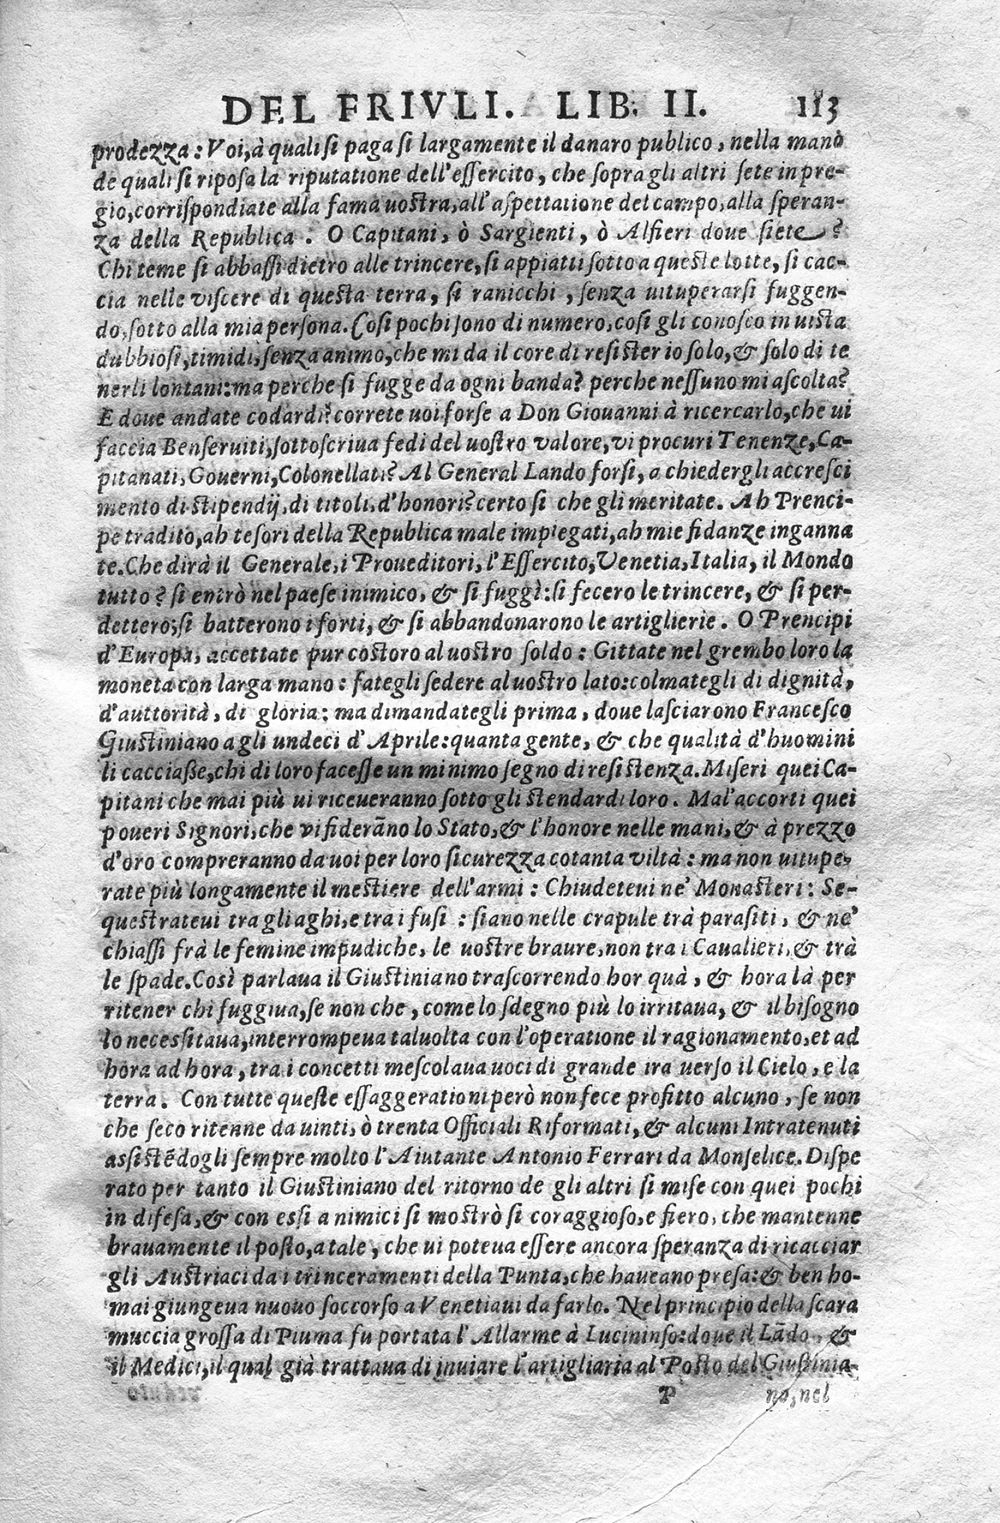 DEL FRIVLI. LIB. II. 113
prodezza: Voi, à quali si paga sì largamente il danaro publico, nella mano
de quali si riposa la riputatione dell'essercito, che sopra gli altri sete in pre-
gio, corrispondiate alla fama uostra, all'aspettatione del campo, alla speran-
za della Republica. O Capitani, ò Sargienti, ò Alfieri doue siete?
Chi teme si abbassi dietro alle trincere, si appiatti sotto a queste lotte, si cac-
cia nelle viscere di questa terra, si ranicchi, senza uituperarsi fuggen-
do, sotto alla mia persona. Così pochi sono di numero, così gli conosco in uista
dubbiosi, timidi, senza animo, che mi da il core di resister io solo, & solo di te
nerli lontani: ma perche si fugge da ogni banda? perche nessuno mi ascolta?
E doue andate codardi? correte uoi forse a Don Giouanni à ricercarlo, che ui
faccia Benseruiti, sottoscriua fedi del uostro valore, vi procuri Tenenze, Ca-
pitanati, Gouerni, Colonellati? Al General Lando forsi, a chiedergli accresci
mento di stipendij, di titoli, d'honori? certo si che gli meritate. Ah Prenci-
pe tradito, ah tesori della Republica male impiegati, ah mie fidanze inganna
te. Che dirà il Generale, i Proueditori, l'Essercito, Venetia, Italia, il Mondo
tutto? si entrò nel paese inimico, & si fuggì: si fecero le trincere, & si per-
dettero; si batterono i forti, & si abbandonarono le artiglierie. O Prencipi
d'Europa, accettate pur costoro al uostro soldo: Gittate nel grembo loro la
moneta con larga mano: fategli sedere al uostro lato: colmategli di dignità,
d'auttorità, di gloria: ma dimandategli prima, doue lasciarono Francesco
Giustiniano agli undeci d'Aprile: quanta gente, & che qualità d'huomini
li cacciasse, chi di loro facesse un minimo segno di resistenza. Miseri quei Ca-
pitani che mai più ui riceueranno sotto gli stendardi loro. Mal'accorti quei
poueri Signori, che vi fiderãno lo Stato, & l'honore nelle mani, & à prezzo
d'oro compreranno da uoi per loro sicurezza cotanta viltà: ma non uitupe-
rate più longamente il mestiere dell'armi: Chiudeteui ne' Monasteri: Se-
questrateui tra gli aghi, e tra i fusi: siano nelle crapule trà parasiti, & ne'
chiassi frà le femine impudiche, le uostre braure, non tra i Caualieri, & trà
le spade. Così parlaua il Giustiniano trascorrendo hor quà, & hora là per
ritener chi fuggiua, se non che, come lo sdegno più lo irritaua, & il bisogno
lo necessitaua, interrompeua taluolta con l'operatione il ragionamento, et ad
hora ad hora, tra i concetti mescolaua uoci di grande ira uerso il Cielo, e la
terra. Con tutte queste essaggerationi però non fece profitto alcuno, se non
che seco ritenne da uinti, ò trenta Officiali Riformati, & alcuni Intratenuti
assistẽdogli sempre molto l'Aiutante Antonio Ferrari da Monselice. Dispe
rato per tanto il Giustiniano del ritorno de gli altri si mise con quei pochi
in difesa, & con essi a nimici si mostrò si coraggioso, e fiero, che mantenne
brauamente il posto, a tale, che ui poteua essere ancora speranza di ricacciar
gli Austriaci da i trinceramenti della Punta, che haueano presa: & ben ho-
mai giungeua nuouo soccorso a Venetiani da farlo. Nel principio della scara
muccia grossa di Piuma fu portata l'Allarme à Lucininso: doue il Lãdo, &
il Medici, il qual già trattaua di inuiare l'artigliaria al Posto del Giustinia-
P no, nel